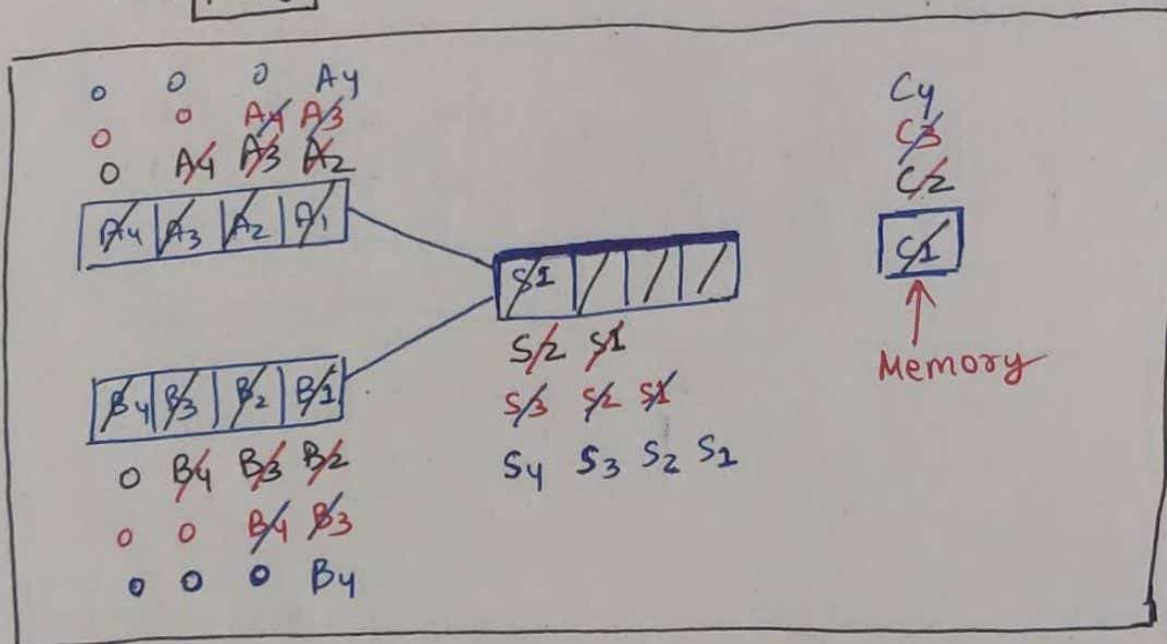 0 0 0 A4
0 0 A4 A3
0 A4 A3 A2
A4 A3 A2 A1
B4 B3 B2 B1
0 B4 B3 B2
0 0 B4 B3
0 0 0 B4
S1
S2 S1
S3 S2 S1
S4 S3 S2 S1
C4
C3
C2
C1
Memory